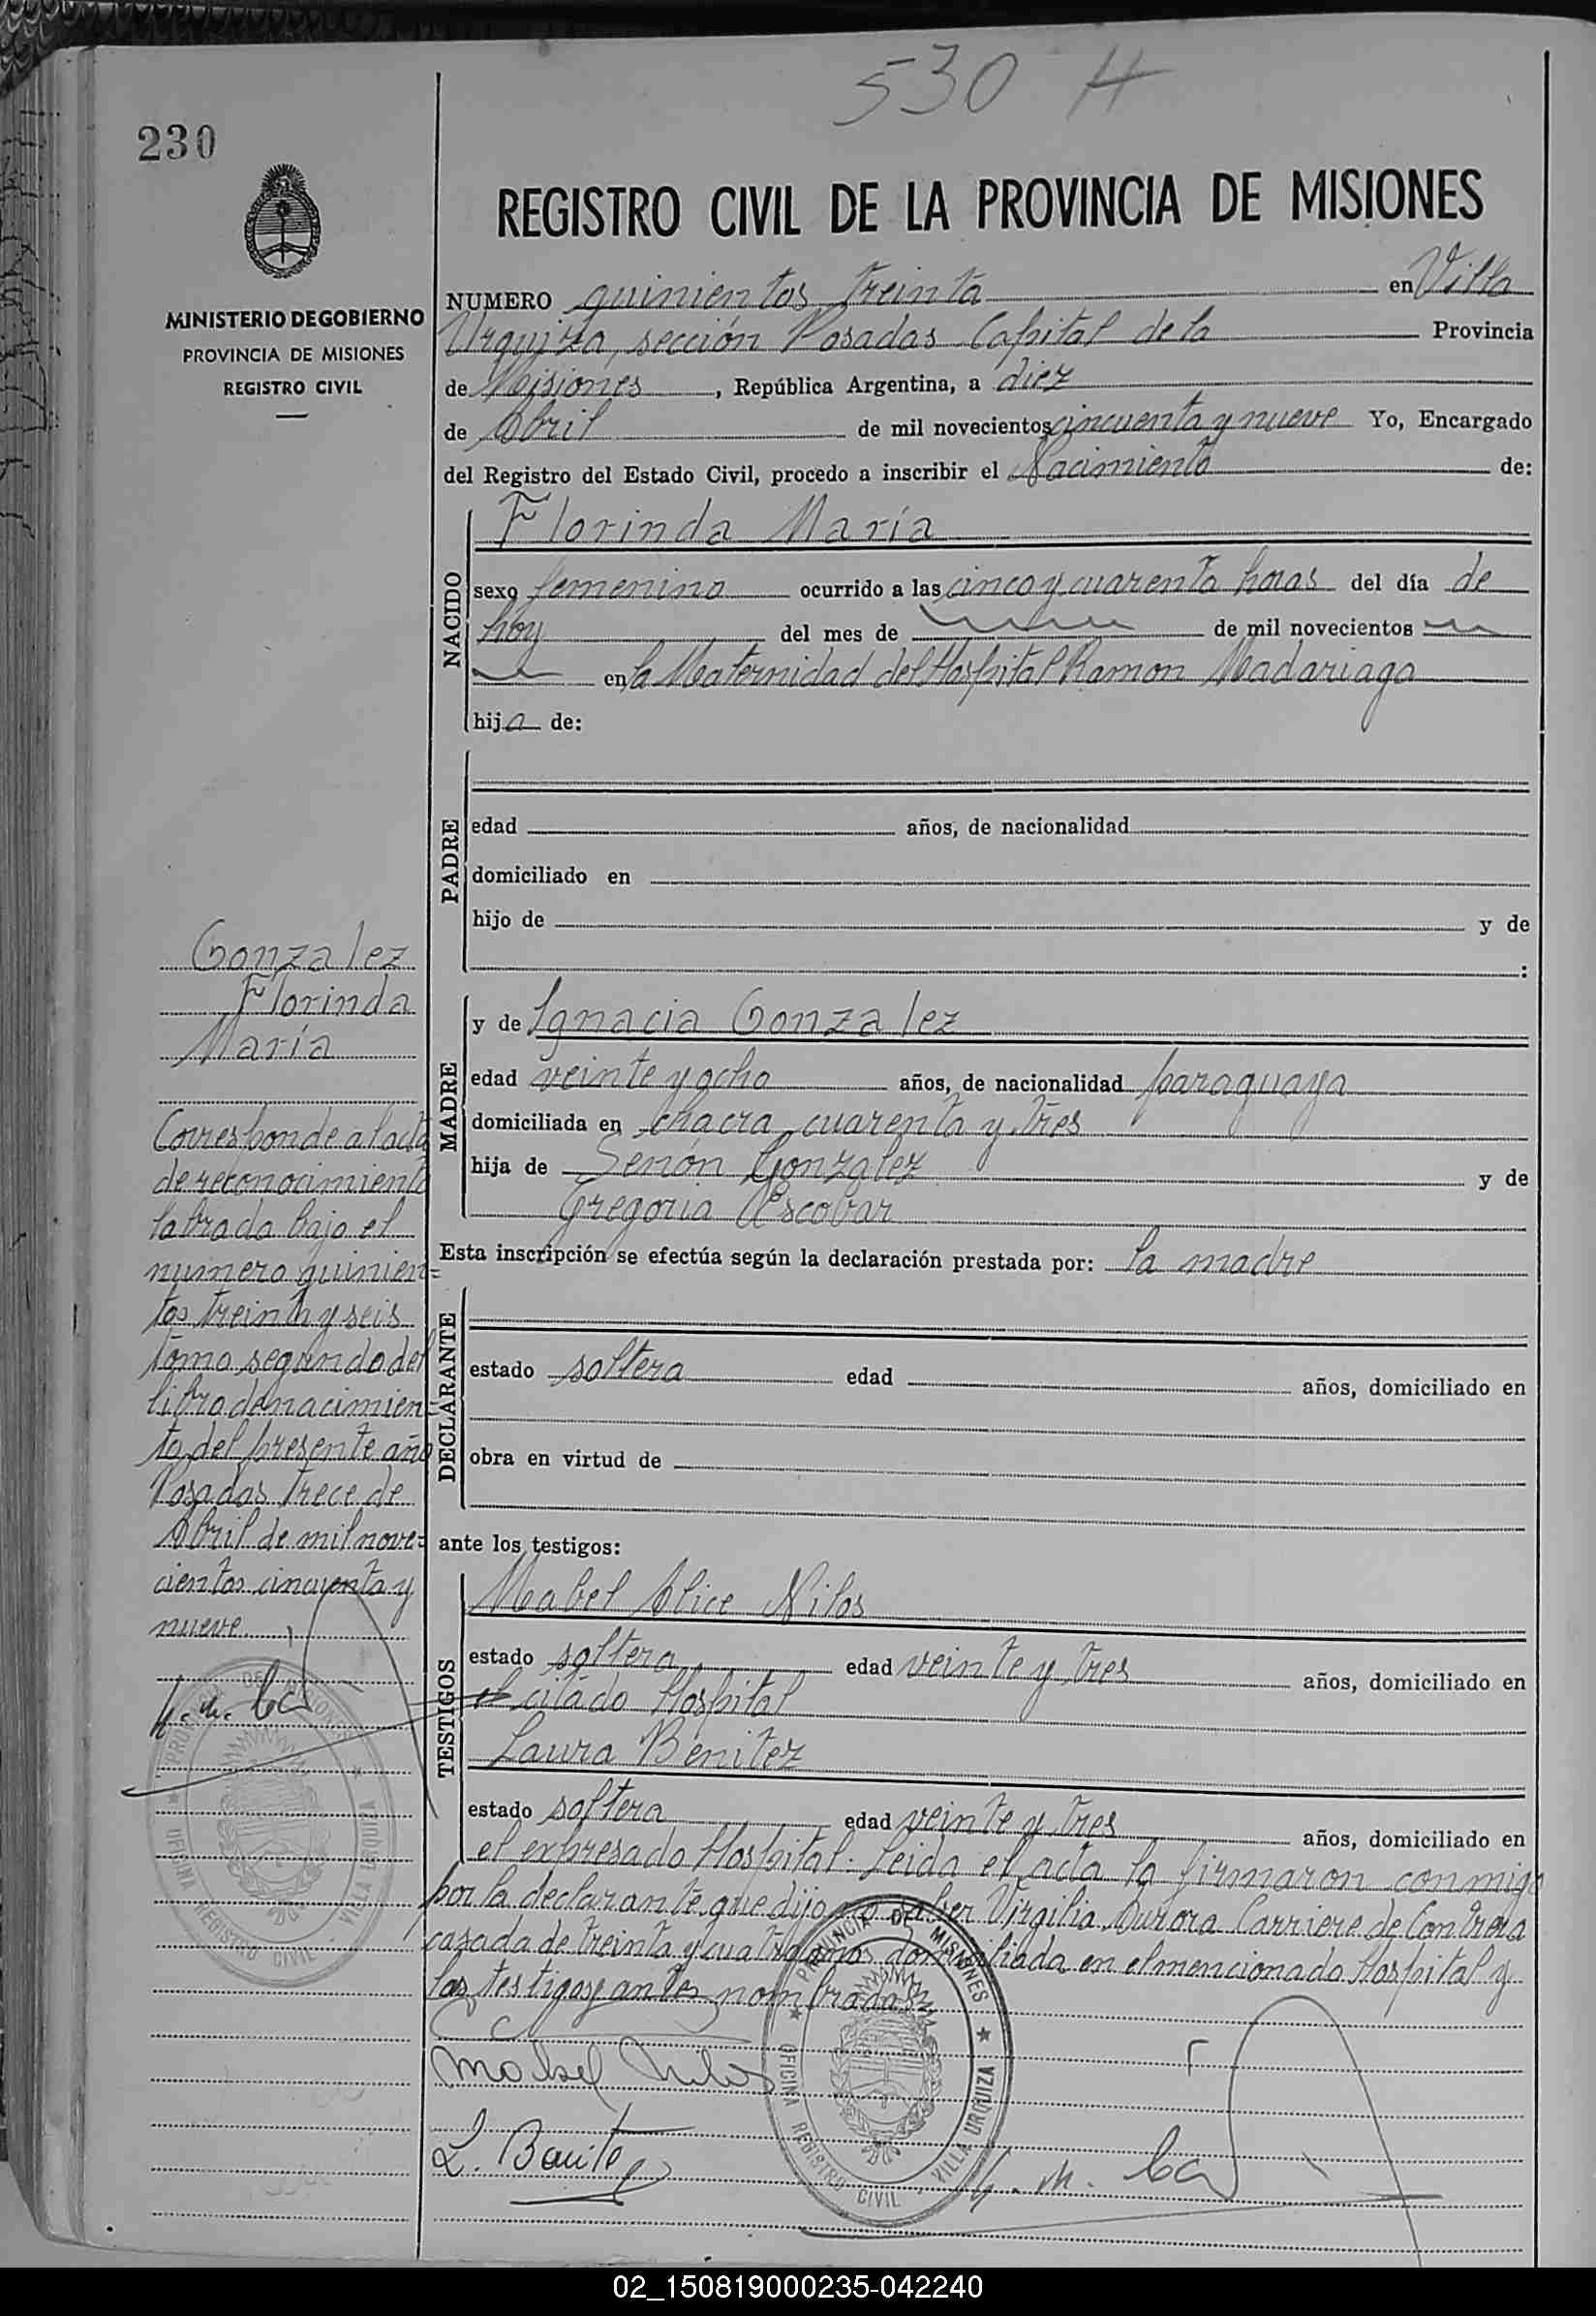 530 H
230
REGISTRO CIVIL DE LA PROVINCIA DE MISIONES
MINISTERIO DE GOBIERNO
PROVINCIA DE MISIONES
REGISTRO CIVIL
NUMERO quinientos treinta en Villa
Urquiza, sección Posadas Capital de la Provincia
de Misiones, República Argentina, a diez
de Abril de mil novecientos cincuenta y nueve Yo, Encargado
del Registro del Estado Civil, procedo a inscribir el Nacimiento de:
NACIDO
Florinda María
sexo femenino ocurrido a las cinco y cuarenta horas del día de
hoy del mes de de mil novecientos
en la Maternidad del Hospital Ramon Madariaga
hija de:
PADRE
edad años, de nacionalidad
domiciliado en
hijo de y de
:
MADRE
y de Ignacia Gonzalez
edad veinte y ocho años, de nacionalidad paraguaya
domiciliada en chacra cuarenta y tres
hija de Senón González y de
Gregoria Escobar
Esta inscripción se efectúa según la declaración prestada por: la madre
DECLARANTE
estado soltera edad años, domiciliado en
obra en virtud de
ante los testigos:
TESTIGOS
Mabel Alice Nilos
estado soltera edad veinte y tres años, domiciliado en
el citado Hospital
Laura Benitez
estado soltera edad veinte y tres años, domiciliado en
el expresado Hospital. Leida el acta la firmaron conmigo
por la declarante que dijo no saber Virgilia Aurora Carriere de Contrera
casada de treinta y cuatro años domiciliada en el mencionado Hospital y
las testigos antes nombradas
Mabel Nilos
L. Benitez
PROVINCIA DE MISIONES
OFICINA REGISTRO CIVIL VILLA URQUIZA
Gonzalez
Florinda
María
Corresponde al acta
de reconocimiento
labrada bajo el
numero quinien=
tos treinta y seis
tomo segundo del
libro de nacimien=
to del presente año
Posadas trece de
Abril de mil nove=
cientos cincuenta y
nueve
PROVINCIA DE MISIONES
OFICINA REGISTRO CIVIL VILLA URQUIZA
02_150819000235-042240